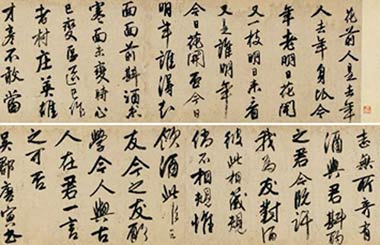 花前人是去年
人去年身比今
年老明日花開
又一枝明日來看
又是誰明年
今日花開否今日
明年誰得知
面面前斟酒酒未
寒面未變時心
已變區區已作
老村莊英雄
才彥不敢當
志無所奇有
酒與君斟酌
之君今既許
我為友對酒
彼此相箴規
倘不相規惟
傾酒此
友今之友願
學今人與古
人在君一言
之可否
吳郡唐寅書